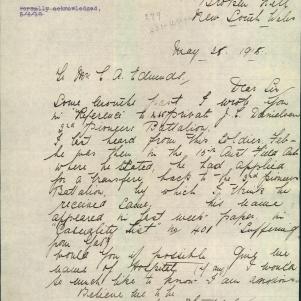 Formally acknowledged,
Broken Hill
New South Wales
May 28. 1918.
To Mr. E. A. Edmunds,
Dear Sir
Some months past I wrote you
in Reference to Private J. Danielson
3rd Pioneers Battalion.
I last heard from this Soldier Feb-
he was then in the 15th Aust Field Amb
where he stated, he had applied
for a transfer back to the 3rd Pioneers
Battalion, by which I think he
received same, his name
appeared in last weeks paper in
"Casualty list" no 401 "Suffering
from Gas"
Would you if possible Give me
name of Hospital (if any) I would
so much like to know I am anxious
Believe me to be